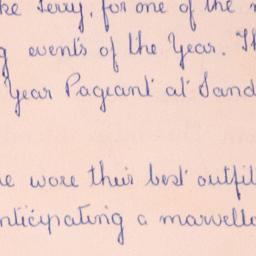 ke Terry, for one of the
g events of the Year. Th
Year Pageant at Sand
e wore their best outfit
nticipating a marvello